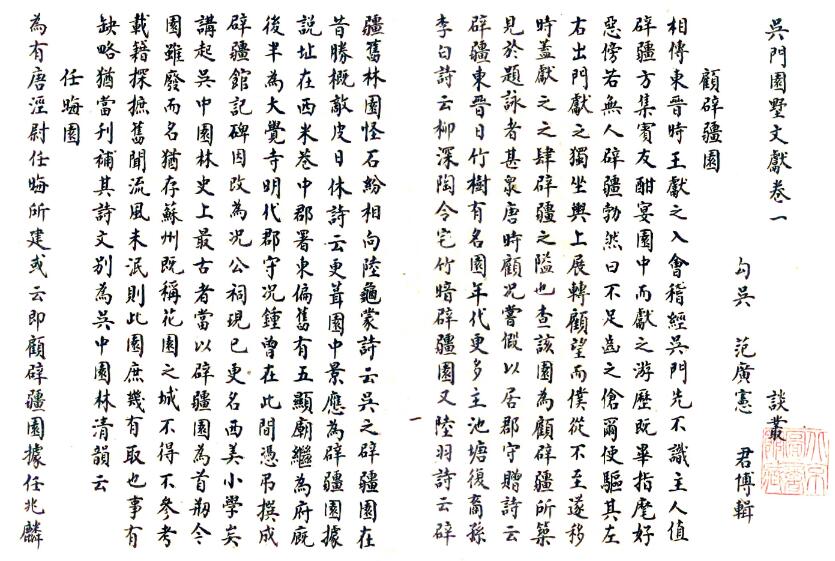 吳門園墅文獻卷一　談叢
勾吳　范廣憲　君博輯
顧辟疆園
相傳東晉時王獻之入會稽經吳門先不識主人值
辟疆方集賓友酣宴園中而獻之游歷既畢指麾好
惡傍若無人辟疆勃然曰不足齒之傖爾使驅其左
右出門獻之獨坐輿上展轉顧望而僕從不至遂移
時蓋獻之之肆辟疆之隘也查該園為顧辟疆所築
見於題詠者甚衆唐時顧況嘗假以居郡守贈詩云
辟疆東晉日竹樹有名園年代更多主池塘復裔孫
李白詩云柳深陶令宅竹暗辟疆園又陸羽詩云辟
一
疆舊林園怪石紛相向陸龜蒙詩云吳之辟疆園在
昔勝概敵皮日休詩云更葺園中景應為辟疆園據
說址在西米巷中郡署東偏舊有五顯廟繼為府廐
後半為大覺寺明代郡守況鍾曾在此間憑弔撰成
辟疆館記碑因改為况公祠現已更名西美小學矣
講起吳中園林史上最古者當以辟疆園為首剏今
園雖廢而名猶存蘇州既稱花園之城不得不參考
載籍探摭舊聞流風未泯則此園庶幾有取也事有
缺略猶當刊補其詩文別為吳中園林清韻云
任晦園
為有唐涇尉任晦所建或云即顧辟疆園據任兆麟